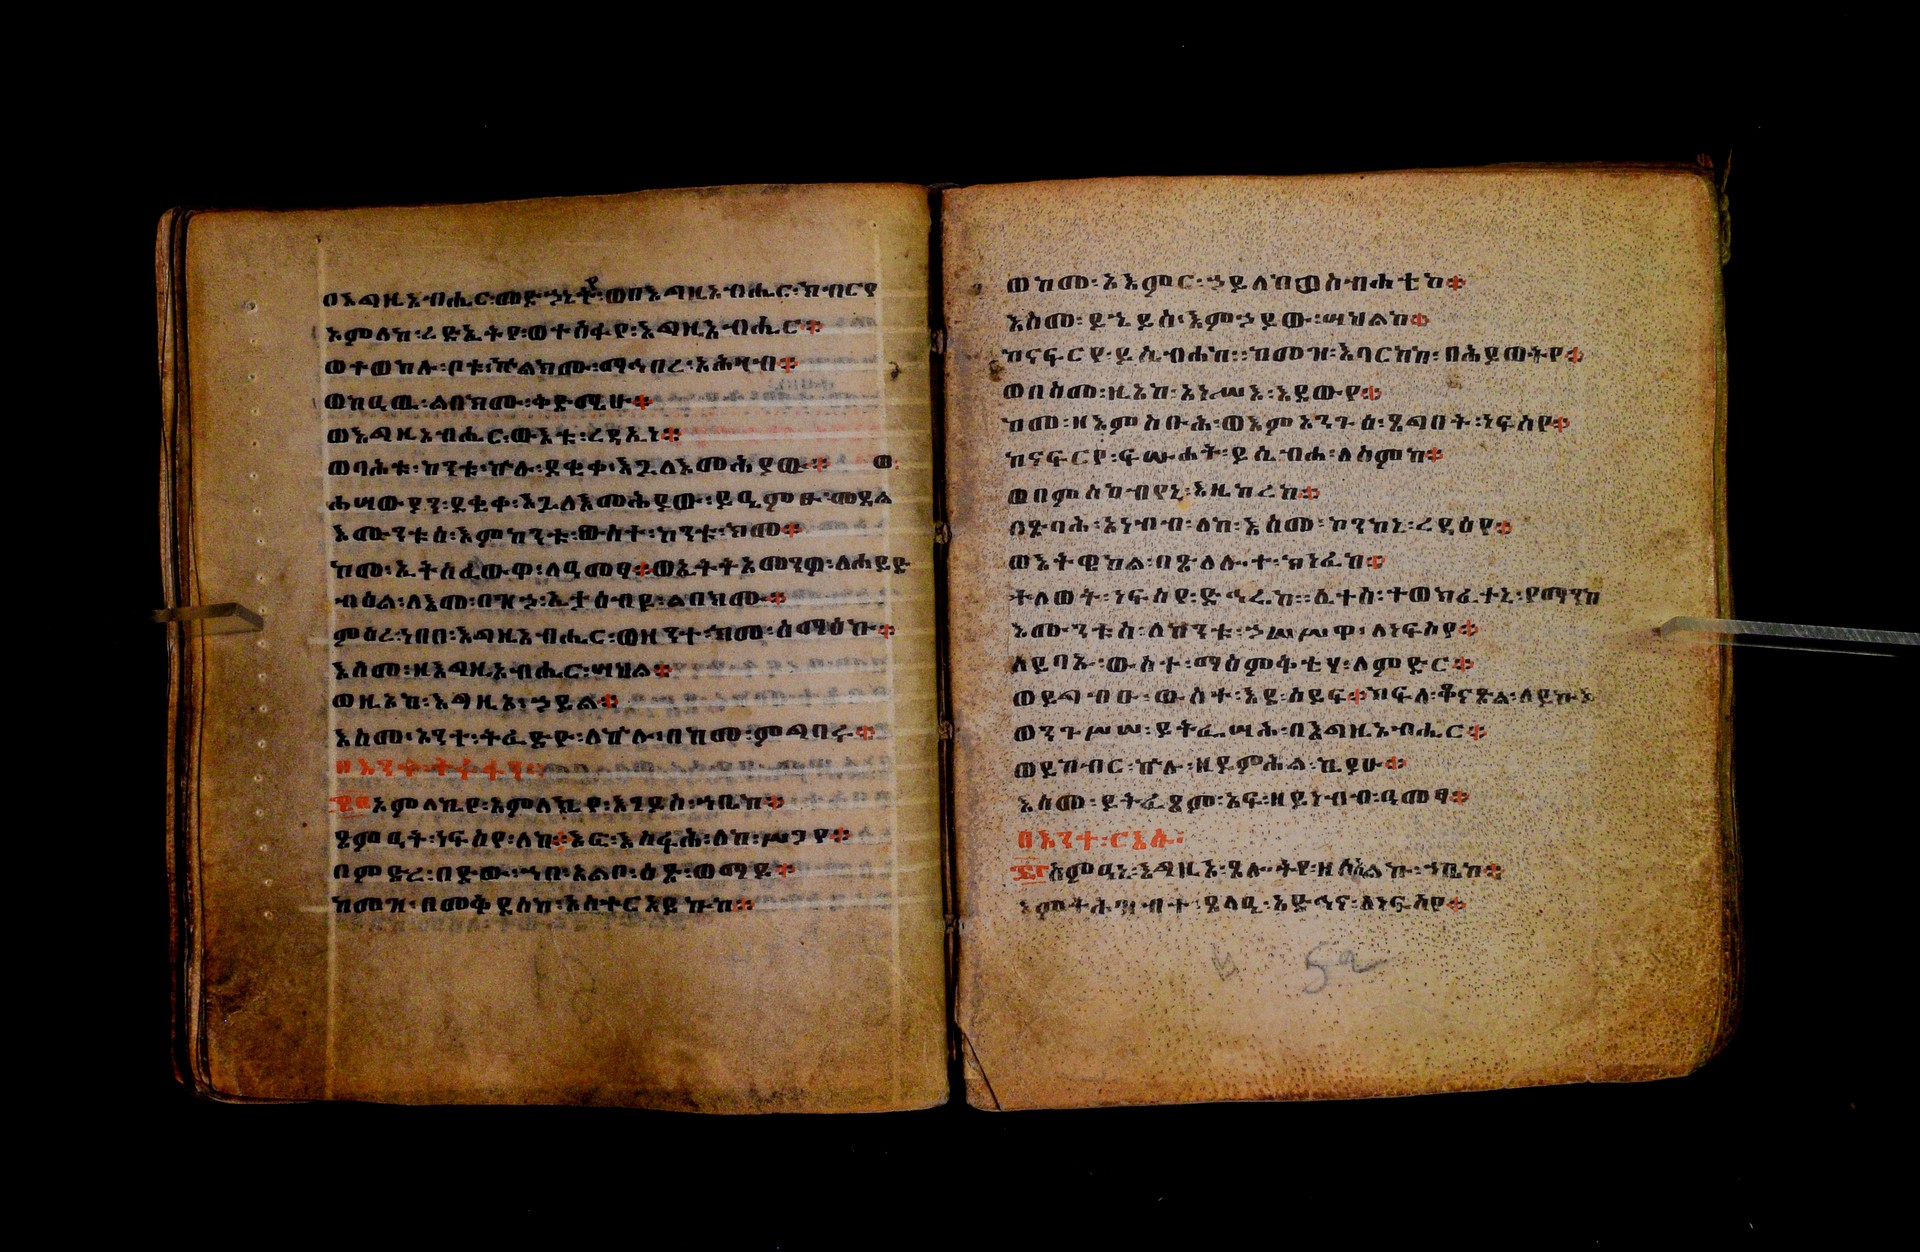 በእግዚአብሔር፡መድኃኒትየ፡ወበእግዚአብሔር፡ክብርየ
አምላከ፡ረድኤትየ፡ወተስፋየ፡እግዚአብሔር፨
ወተወከሉ፡ቦቱ፡ኵልክሙ፡ማኅበረ፡አሕዛብ፨
ወከዐዉ፡ልበክሙ፡ቅድሜሁ፨
ወእግዚአብሔር፡ውእቱ፡ረዳኢነ፨
ወባሕቱ፡ከንቱ፡ኵሉ፡ደቂቀ፡እጓለእመሕያው፨ ወ፡
ሐሣውያን፡ደቂቀ፡እጓለእመሕያው፡ይዔምፁ፡መዳል
እሙንቱሰ፡እምከንቱ፡ውስተ፡ከንቱ፡ክመ፨
ከመ፡ኢትሰፈውዋ፡ለዓመፃ፨ወኢትትአመንዎ፡ለሐይድ
ብዕል፡ለእመ፡በዝኃ፡ኢታዕብዩ፡ልበክሙ፨
ምዕረ፡ነበበ፡እግዚአብሔር፡ወዘንተ፡ክመ፡ሰማዕኩ፨
እስመ፡ዘእግዚአብሔር፡ሣህል፨
ወዚአከ፡እግዚኦ፡ኃይል፨
እስመ፡አንተ፡ትፈድዮ፡ለኵሉ፡በከመ፡ምግባሩ፨
በእንተ፡ትሩፋን፡
፷፪አምላኪየ፡አምላኪየ፡እገይስ፡ኀቤከ፨
ጸምዐት፡ነፍስየ፡ለከ፨እፎ፡እስፋሕ፡ለከ፡ሥጋየ፨
በምድረ፡በድው፡ኀበ፡አልቦ፡ዕፅ፡ወማይ፨
ከመዝ፡በመቅደስከ፡አስተርአይኩከ፨
ወከመ፡አእምር፡ኃይለከ፡ወስብሐቲከ፨
እስመ፡ይኄይስ፡እምኃይው፡ሣህልከ፨
ከናፍርየ፡ይሴብሐከ፡፡ከመዝ፡እባርከከ፡በሕይወትየ፨
ወበስመ፡ዚአከ፡አነሥእ፡እደውየ፨
ከመ፡ዘእምስቡሕ፡ወእምአንጉዕ፡ጸግበት፡ነፍስየ፨
ከናፍርየ፡ፍሡሐት፡ይሴብሐ፡ለስምከ፨
ወበምስካብየኒ፡እዜከረከ፨
በጽባሕ፡እነብብ፡ለከ፡እስመ፡ኮንከኒ፡ረዳዕየ፨
ወእትዌከል፡በጽላሎተ፡ክነፊከ፨
ተለወት፡ነፍስየ፡ድኅሬከ፡፡ሊተሰ፡ተወክፈተኒ፡የማንከ
እሙንቱሰ፡ለከንቱ፡ኃሠሥዋ፡ለነፍስየ፨
ለይባኡ፡ውስተ፡ማዕምቅቲሃ፡ለምድር፨
ወይግብኡ፡ውስተ፡እደ፡ሰይፍ፨ክፍለ፡ቆናጽል፡ለይኩኑ
ወንጉሥሰ፡ይትፌሣሕ፡በእግዚአብሔር፨
ወይከብር፡ኵሉ፡ዘይምሕል፡ኪያሁ፨
እስመ፡ይትፈፀም፡አፍ፡ዘይነብብ፡ዓመፃ፨
በእንተ፡ርእሱ፡
፷፫ስምዐኒ፡እግዚኦ፡ጸሎትየ፡ዘሰአልኩ፡ኀቤከ፨
እምትሕዝብተ፡ጸላዒ፡አድኅና፡ለነፍስየ፨